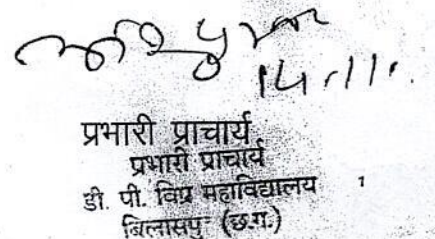 14.11.
प्रभारी प्राचार्य
प्रभारी प्राचार्य
डी. पी. विप्र महाविद्यालय 1
बिलासपुर (छ.ग.)